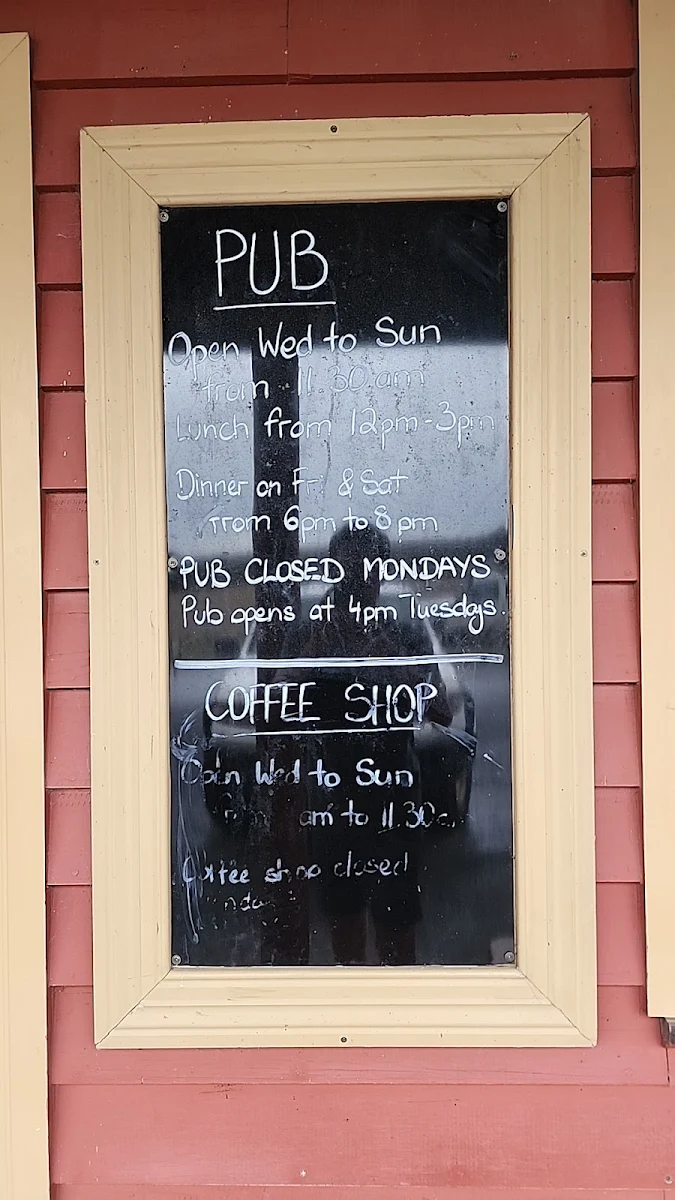 PUB
Open Wed to Sun
from 11.30am
Lunch from 12pm-3pm
Dinner on Fri & Sat
from 6pm to 8pm
PUB CLOSED MONDAYS
Pub opens at 4pm Tuesdays.
COFFEE SHOP
Open Wed to Sun
am to 11.30
Coffee shop closed